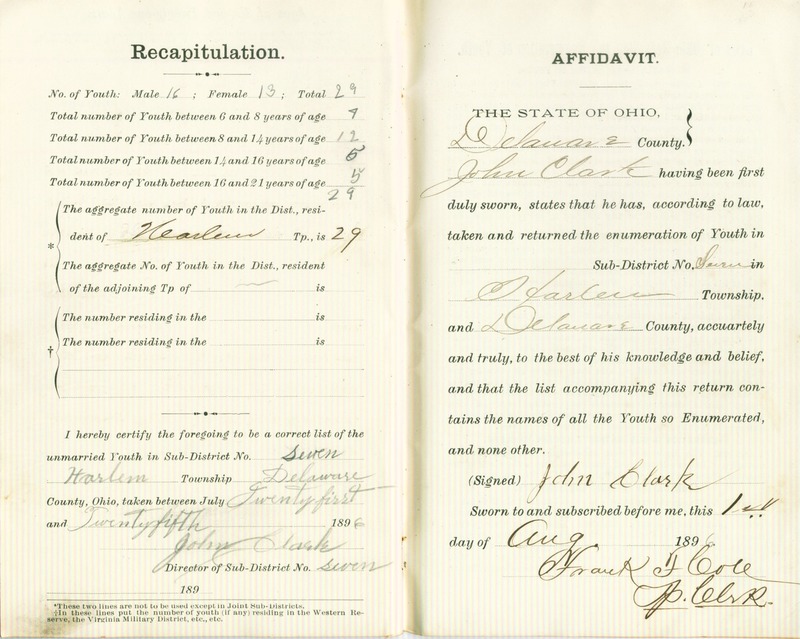 Recapitulation.
No. of Youth: Male 16 ; Female 13 ; Total 29
Total number of Youth between 6 and 8 years of age 7
Total number of Youth between 8 and 14 years of age 12
Total number of Youth between 14 and 16 years of age 5
Total number of Youth between 16 and 21 years of age 5
29
The aggregate number of Youth in the Dist., resi-
* dent of Harlem Tp., is 29
The aggregate No. of Youth in the Dist., resident
of the adjoining Tp of is
The number residing in the is
† The number residing in the is
I hereby certify the foregoing to be a correct list of the
unmarried Youth in Sub-District No. seven
Harlem Township Delaware
County, Ohio, taken between July Twenty first
and Twenty fifth 1896
John Clark
Director of Sub-District No. seven
189
*These two lines are not to be used except in Joint Sub-Districts.
†In these lines put the number of youth (if any) residing in the Western Re-
serve, the Virginia Military District, etc., etc.
AFFIDAVIT.
THE STATE OF OHIO, }
Delaware County.
John Clark having been first
duly sworn, states that he has, according to law,
taken and returned the enumeration of Youth in
Sub-District No. Seven in
Harlem Township.
and Delaware County, accuartely
and truly, to the best of his knowledge and belief,
and that the list accompanying this return con-
tains the names of all the Youth so Enumerated,
and none other.
(Signed) John Clark
Sworn to and subscribed before me, this 1st
day of Aug 1896
Frank F Cole
Tp. Clerk.